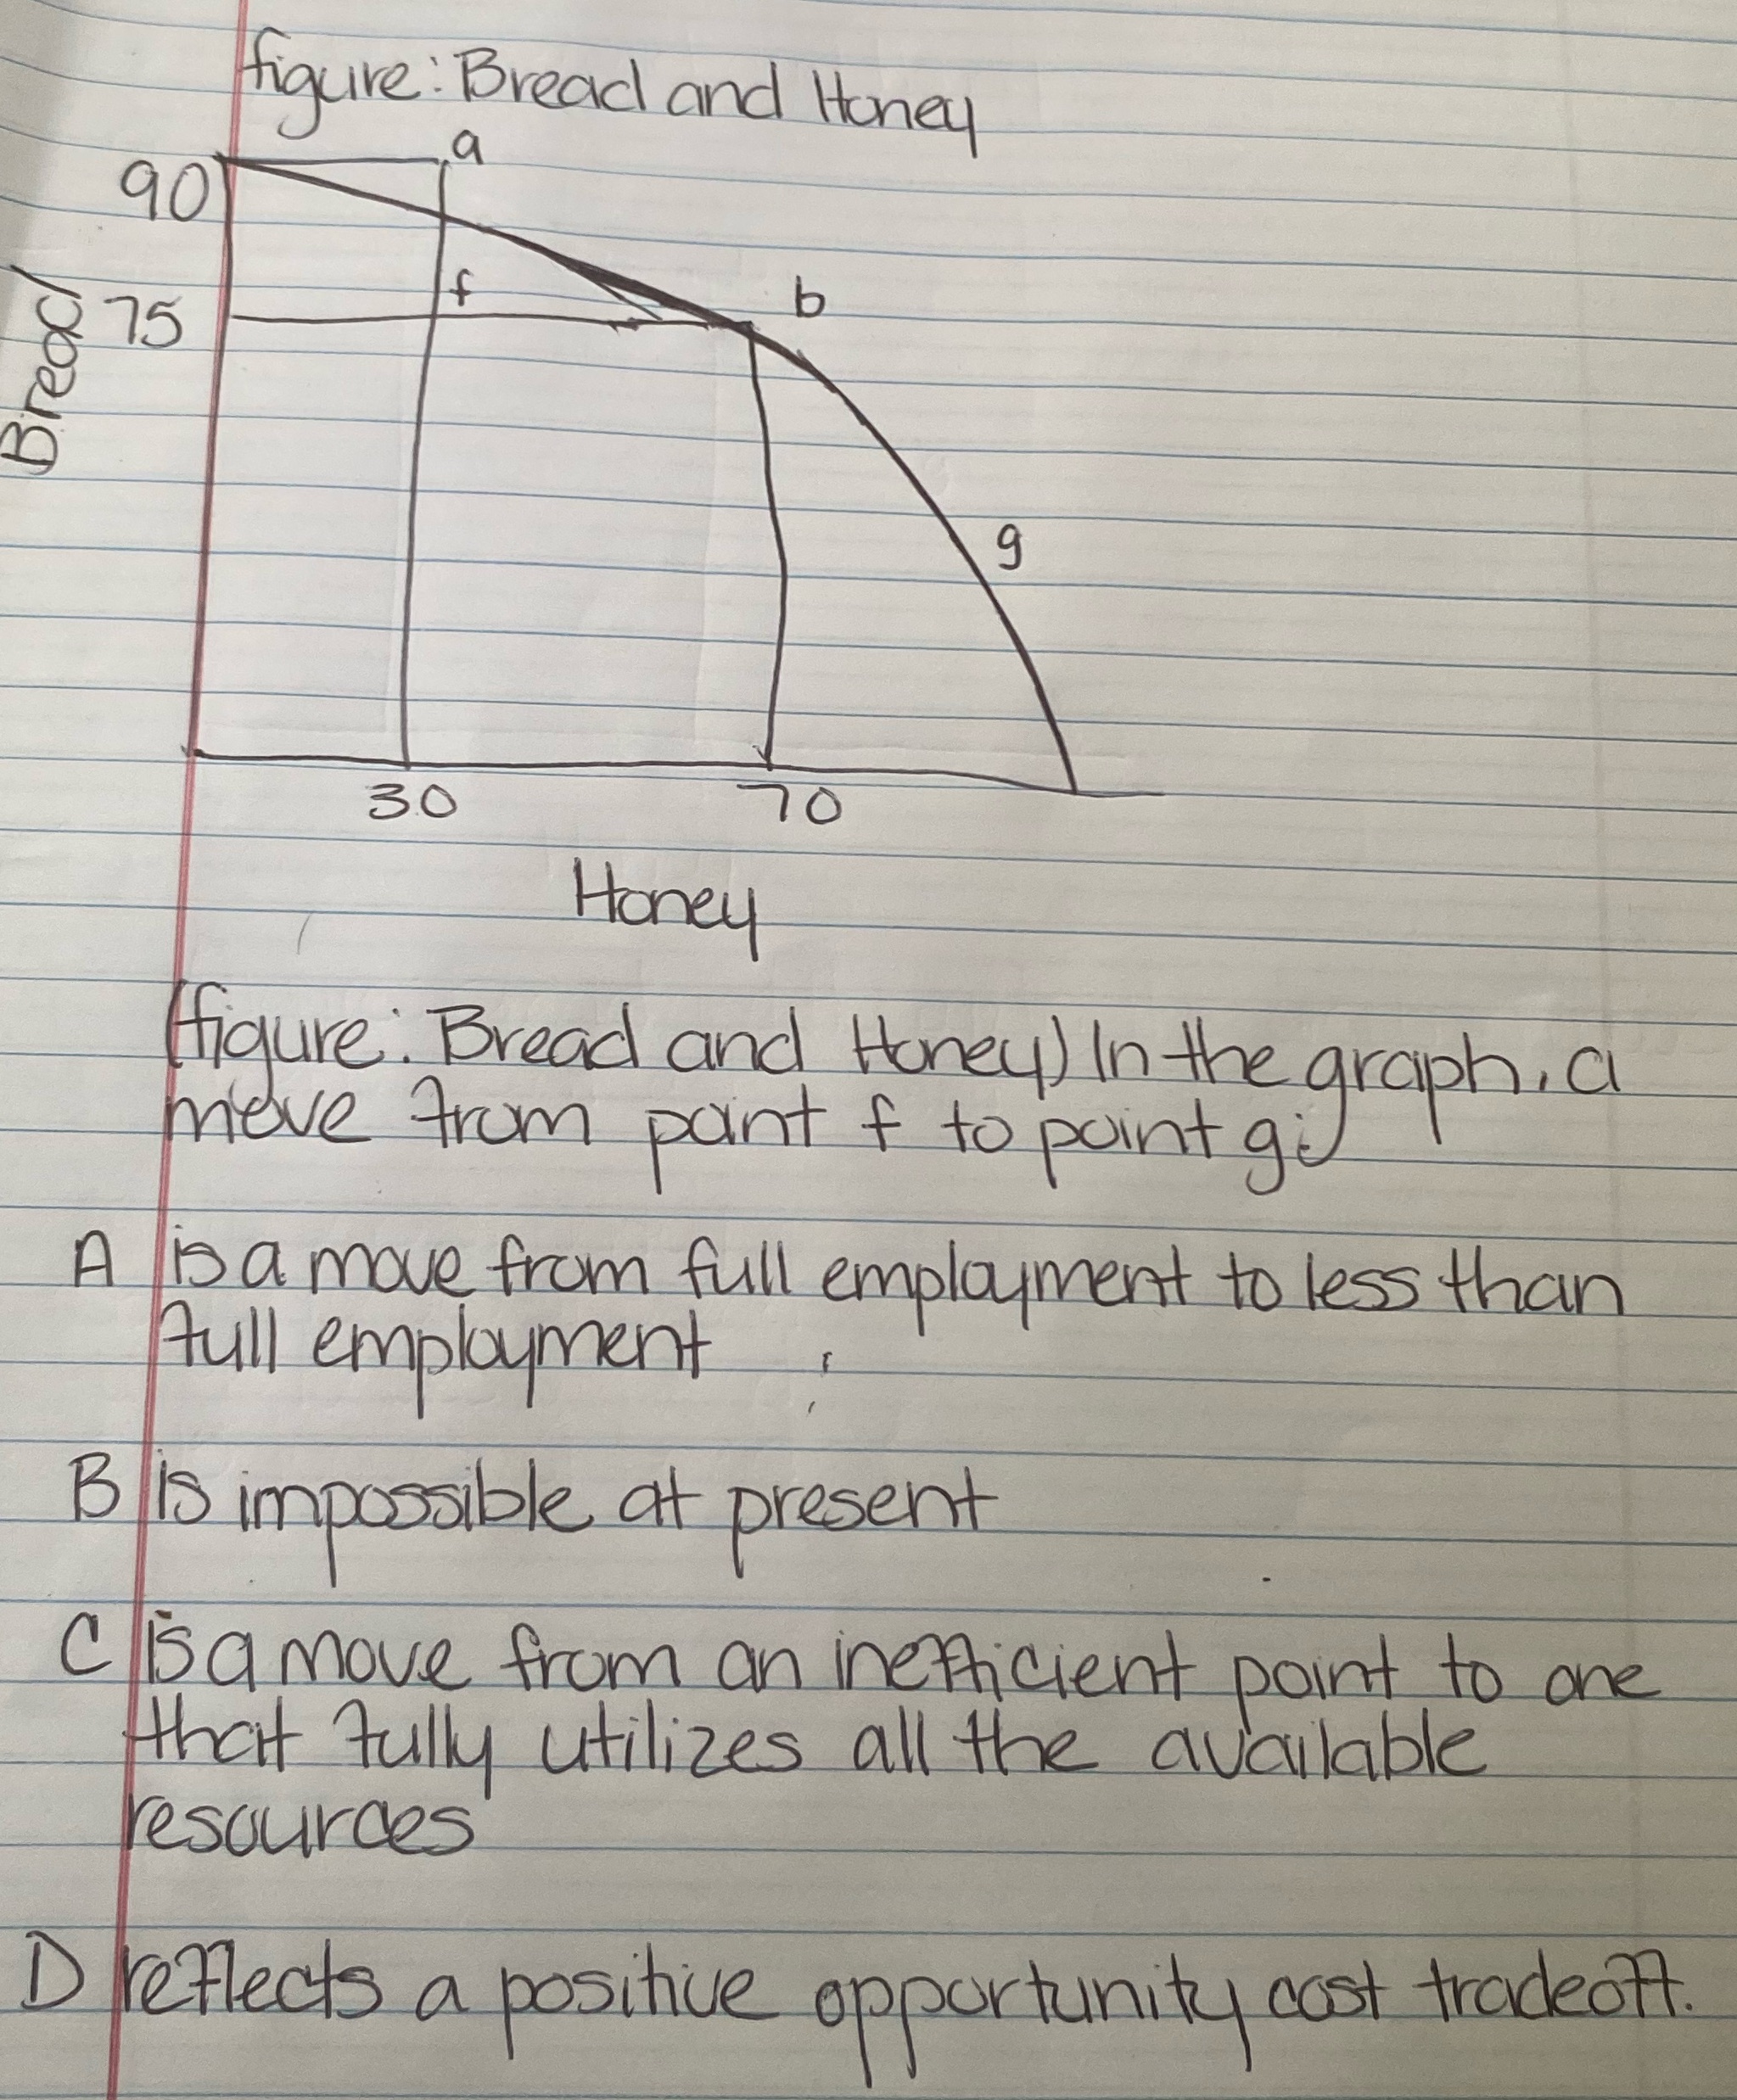 figure: Bread and Honey
a
90
f
b
75
Bread
g
30
70
Honey
(figure: Bread and Honey) In the graph, a
move from point f to point g:
A is a move from full employment to less than
full employment
B is impossible at present
C is a move from an inefficient point to one
that fully utilizes all the available
resources
D reflects a positive opportunity cost tradeoff.